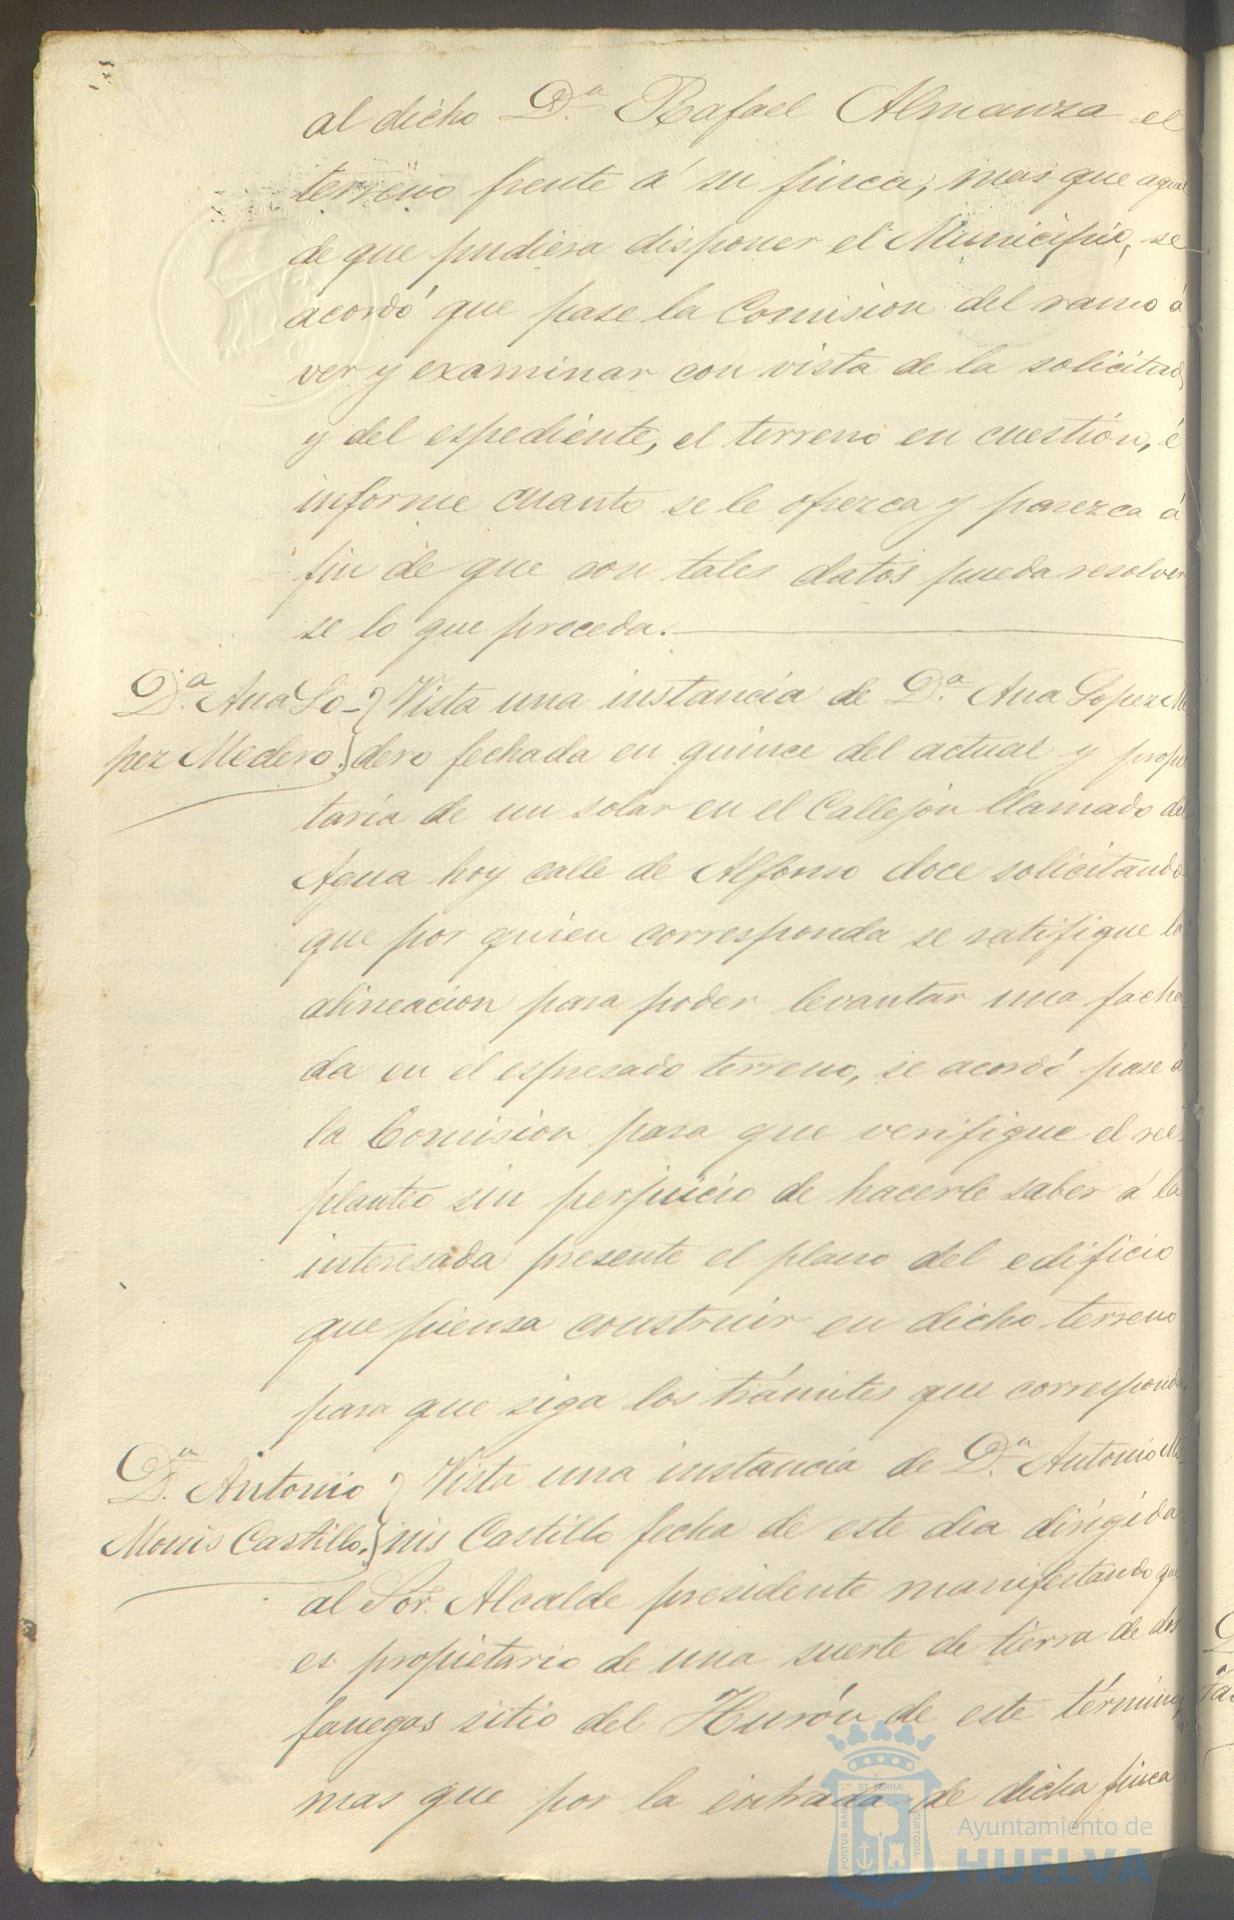 al dicho D.ⁿ Rafael Almanza el
terreno frente á su finca, mas que aquel
de que pudiera disponer el Municipio, se
acordó que pase la Comision del ramo á
ver y examinar con vista de la solicitud
y del espediente, el terreno en cuestión, é
informe cuanto se le ofrezca y parezca á
fin de que con tales datos pueda resolver
se lo que proceda.
D.ª Ana Lo-
pez Medero.
Vista una instancia de D.ª Ana Lopez Me
dero fechada en quince del actual y propie
taria de un solar en el Callejón llamado del
Agua hoy calle de Alfonso doce solicitando
que por quien corresponda se ratifique la
alineacion para poder levantar una facha
da en el espresado terreno, se acordó pase á
la Comision para que verifique el ree
planteo sin perjuicio de hacerle saber á la
interesada presente el plano del edificio
que piensa construir en dicho terreno
para que siga los trámites que corresponda.
D.ⁿ Antonio
Monis Castillo.
Vista una instancia de D.ⁿ Antonio Mo
nis Castillo fecha de este dia dirigida
al Sor. Alcalde presidente manifestando que
es propietario de una suerte de tierra de dos
fanegas sitio del Hurón de este término,
mas que por la entrada de dicha finca
PORTUS MARIS ET TERRÆ CUSTODIA
Ayuntamiento de
HUELVA